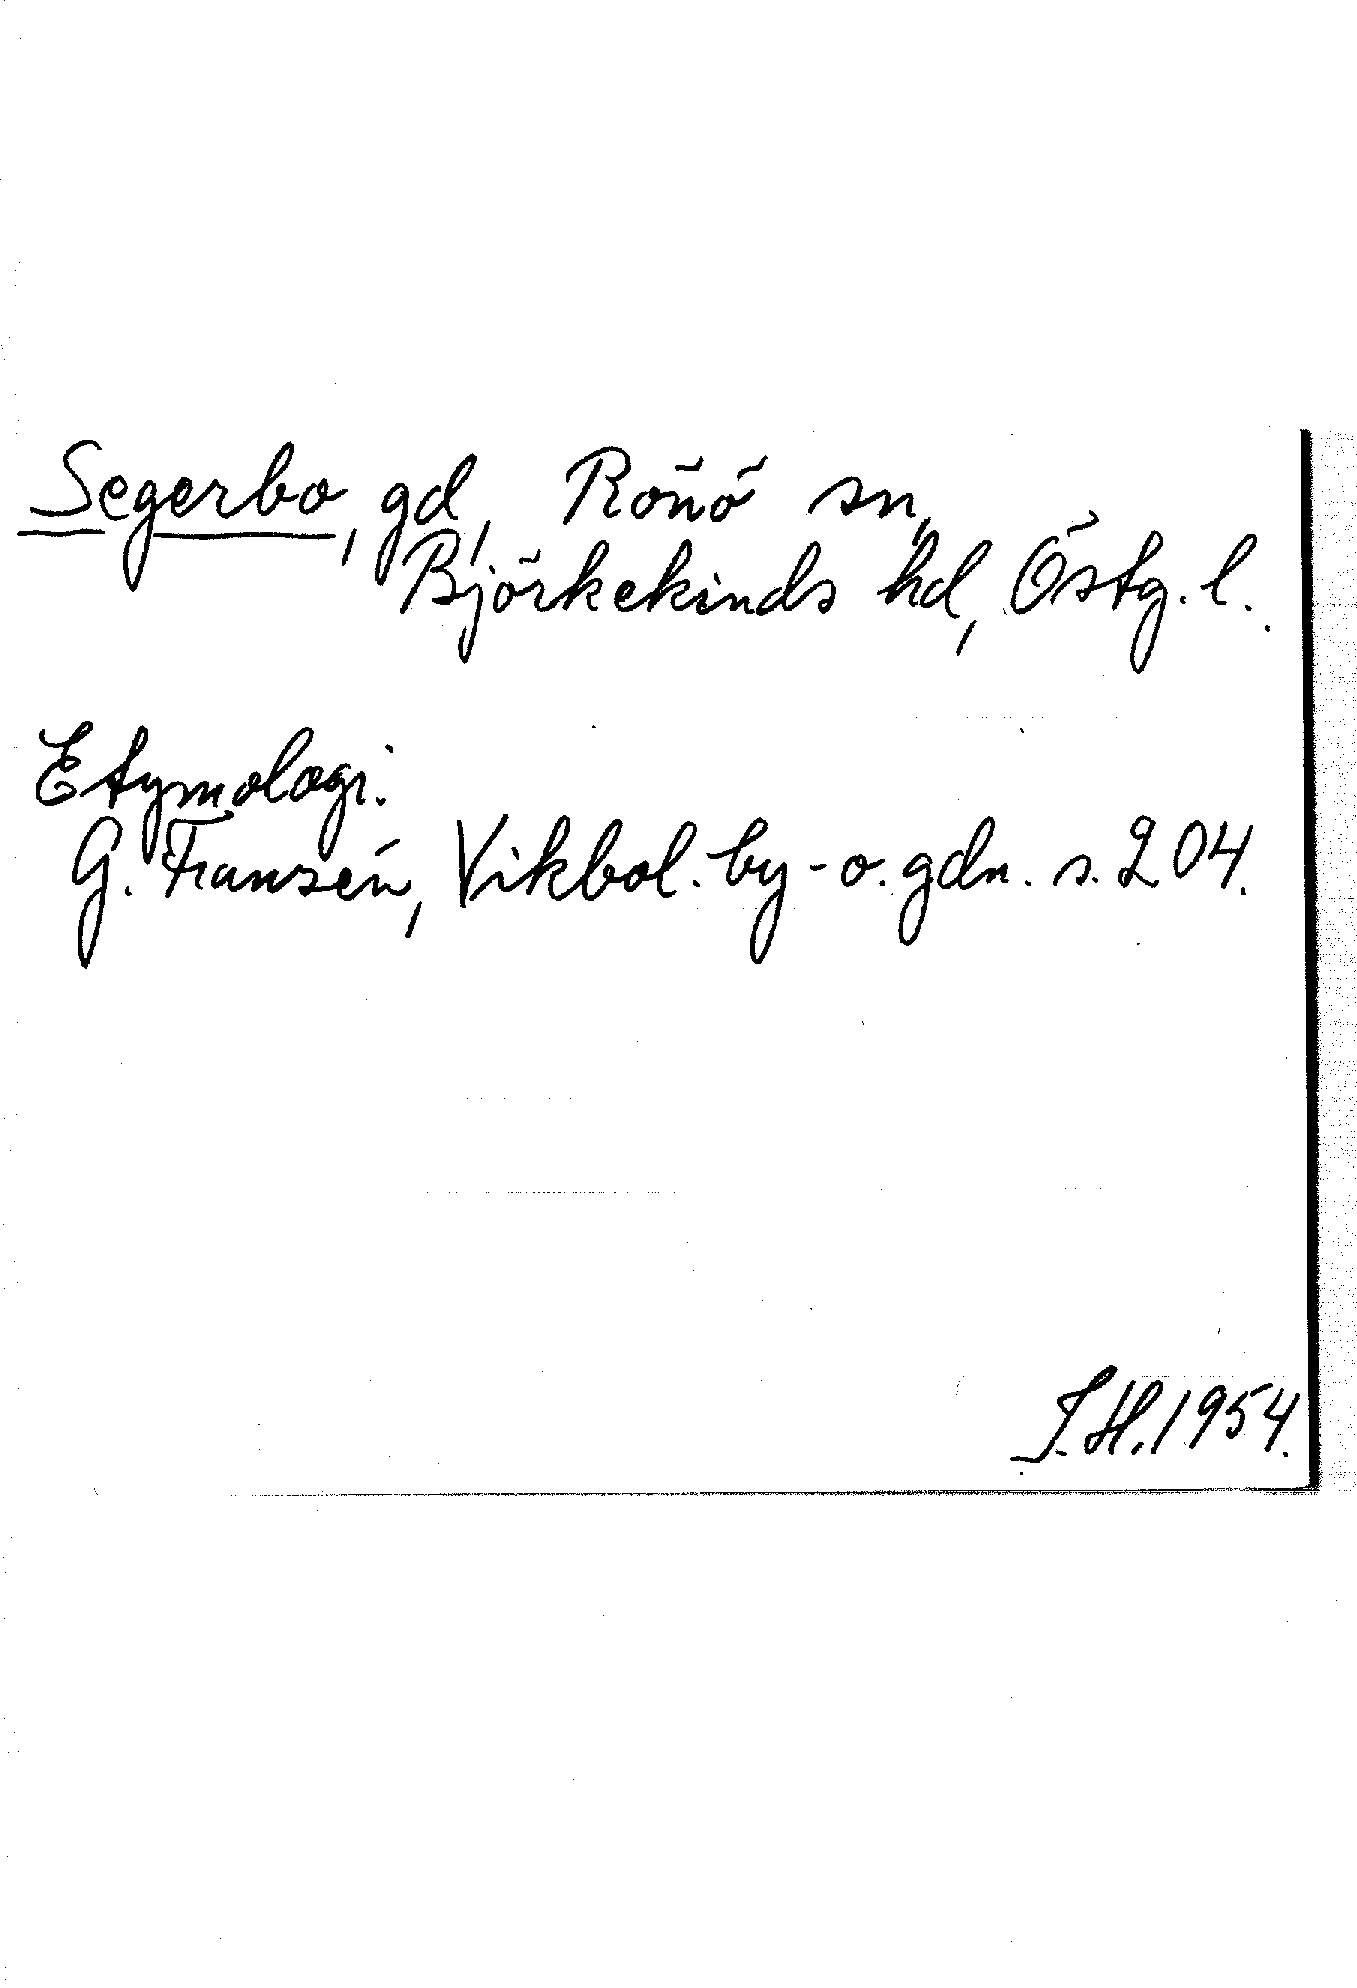 Segerbo, gd, Rönö sn,
Björkekinds hd, Östg. l.
Etymologi.
G. Franzén, Vikbol. by- o. gdn. s. 204.
I.H. 1954.